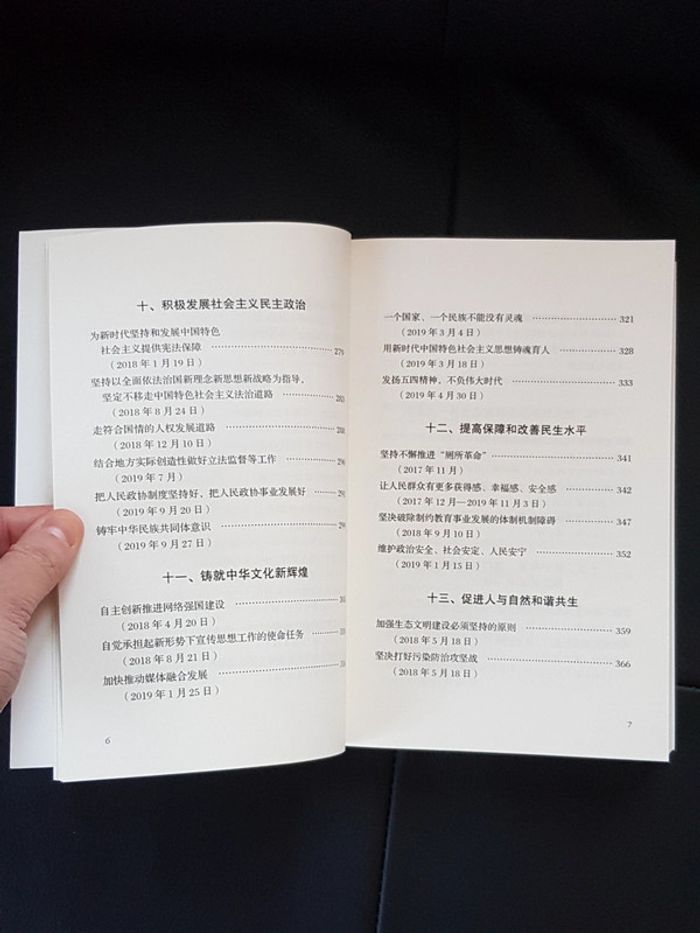 十、积极发展社会主义民主政治
为新时代坚持和发展中国特色
社会主义提供宪法保障
（2018 年 1 月 19 日）
坚持以全面依法治国新理念新思想新战略为指导，
坚定不移走中国特色社会主义法治道路 283
（2018 年 8 月 24 日）
走符合国情的人权发展道路 288
（2018 年 12 月 10 日）
结合地方实际创造性做好立法监督等工作
（2019 年 7 月）
把人民政协制度坚持好，把人民政协事业发展好
（2019 年 9 月 20 日）
铸牢中华民族共同体意识
（2019 年 9 月 27 日）
十一、铸就中华文化新辉煌
自主创新推进网络强国建设
（2018 年 4 月 20 日）
自觉承担起新形势下宣传思想工作的使命任务
（2018 年 8 月 21 日）
加快推动媒体融合发展
（2019 年 1 月 25 日）
6
一个国家、一个民族不能没有灵魂 321
（2019 年 3 月 4 日）
用新时代中国特色社会主义思想铸魂育人 328
（2019 年 3 月 18 日）
发扬五四精神，不负伟大时代 333
（2019 年 4 月 30 日）
十二、提高保障和改善民生水平
坚持不懈推进“厕所革命” 341
（2017 年 11 月）
让人民群众有更多获得感、幸福感、安全感 342
（2017 年 12 月—2019 年 11 月 3 日）
坚决破除制约教育事业发展的体制机制障碍 347
（2018 年 9 月 10 日）
维护政治安全、社会安定、人民安宁 352
（2019 年 1 月 15 日）
十三、促进人与自然和谐共生
加强生态文明建设必须坚持的原则 359
（2018 年 5 月 18 日）
坚决打好污染防治攻坚战 366
（2018 年 5 月 18 日）
7